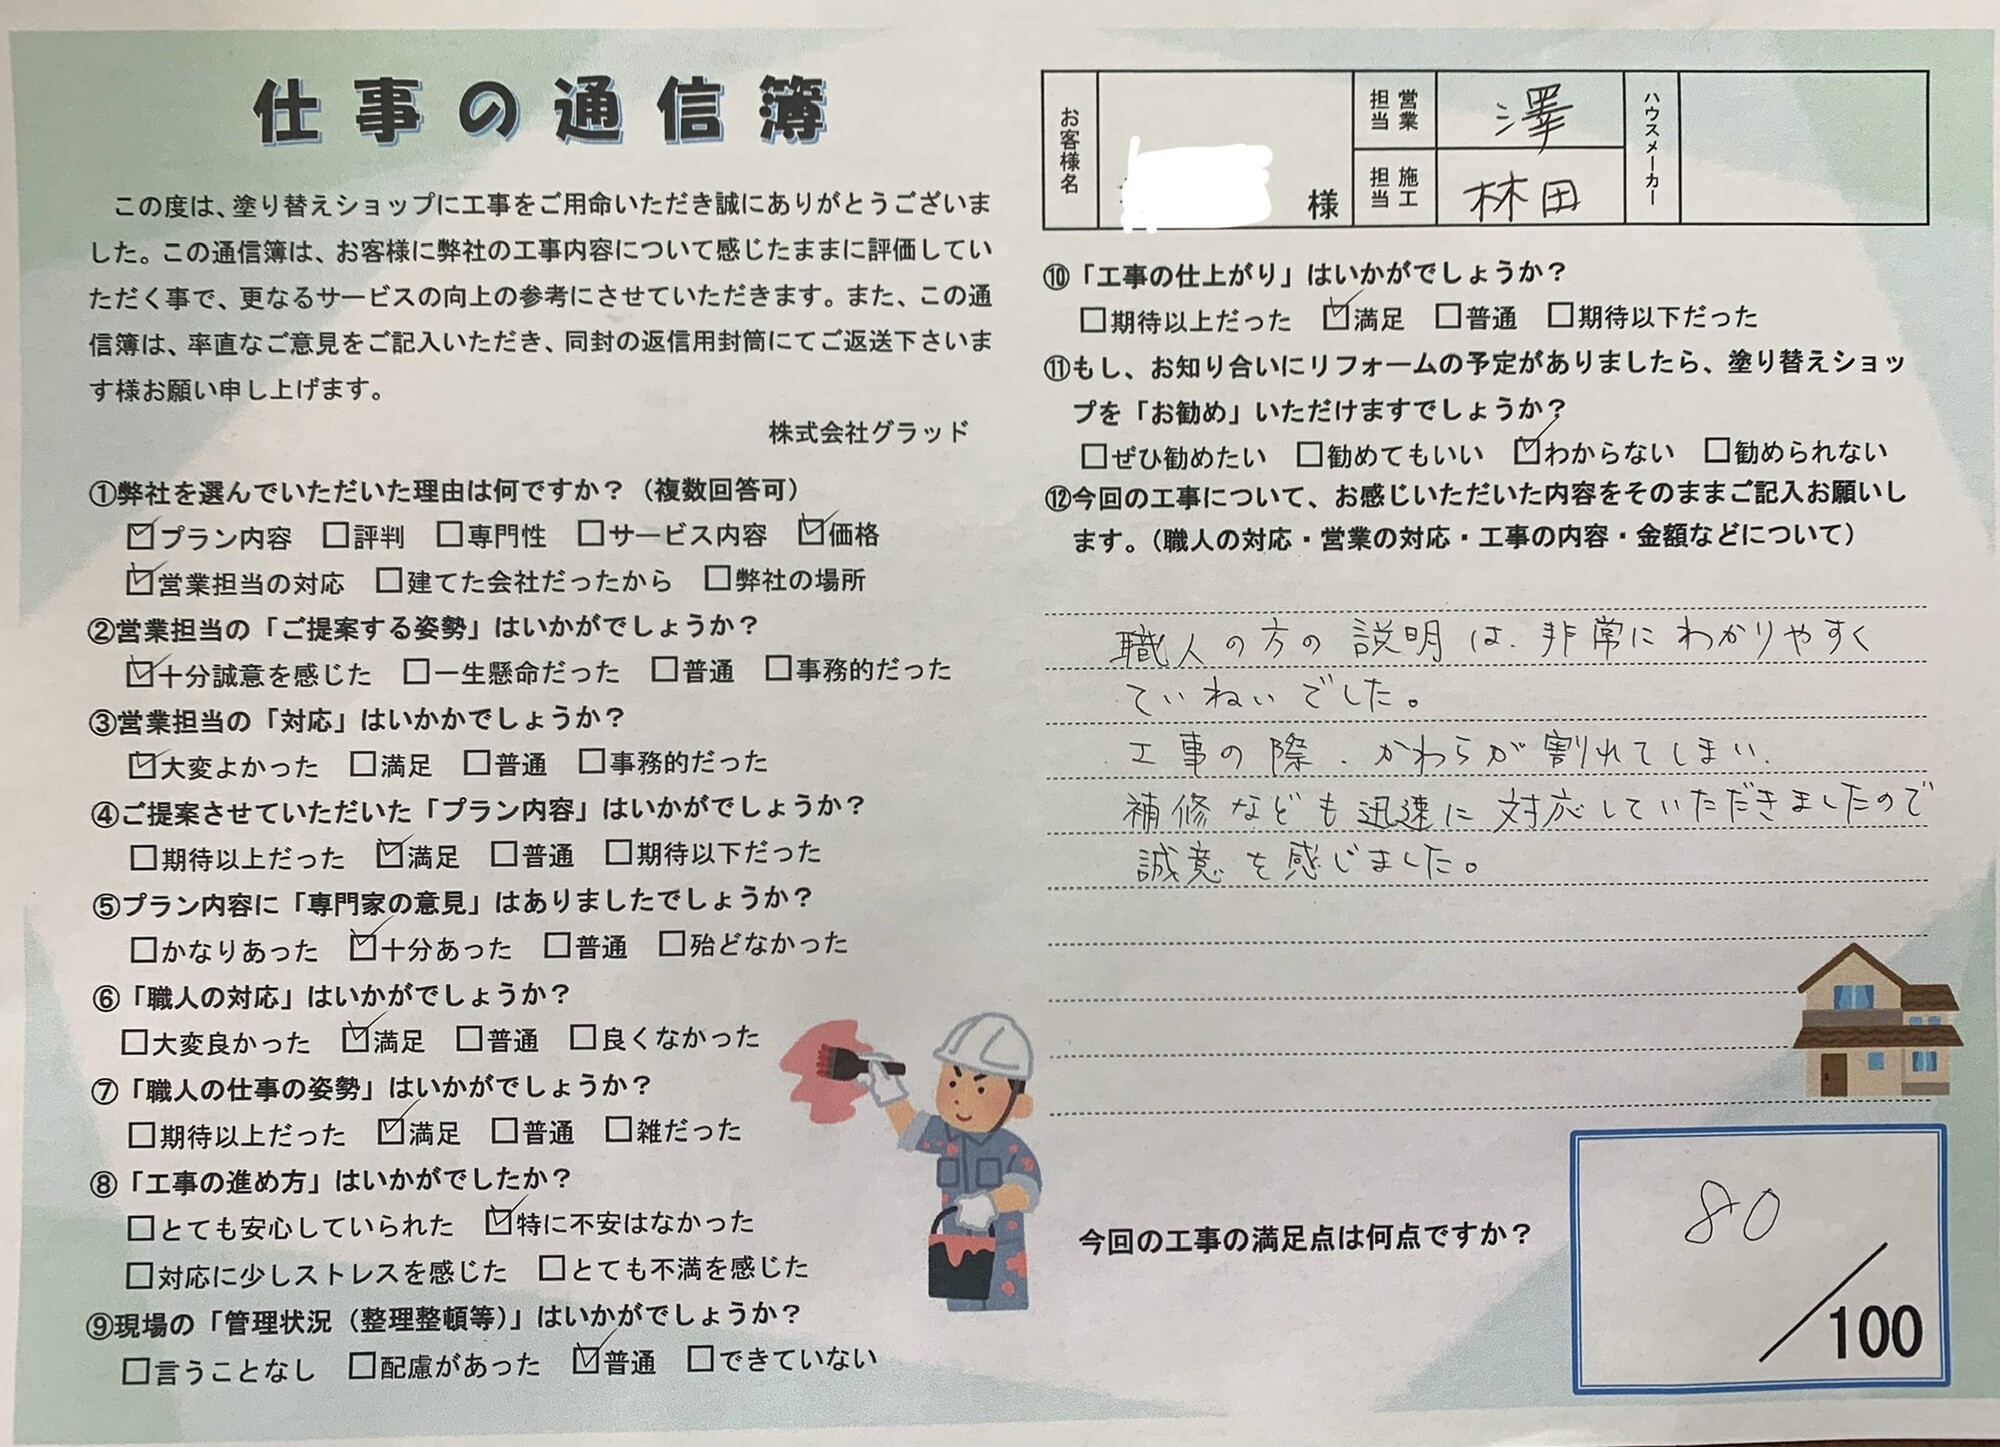 仕事の通信簿
この度は、塗り替えショップに工事をご用命いただき誠にありがとうございま
した。この通信簿は、お客様に弊社の工事内容について感じたままに評価してい
ただく事で、更なるサービスの向上の参考にさせていただきます。また、この通
信簿は、率直なご意見をご記入いただき、同封の返信用封筒にてご返送下さいま
す様お願い申し上げます。
株式会社グラッド
①弊社を選んでいただいた理由は何ですか？（複数回答可）
☑プラン内容 □評判 □専門性 □サービス内容 ☑価格
☑営業担当の対応 □建てた会社だったから □弊社の場所
②営業担当の「ご提案する姿勢」はいかがでしょうか？
☑十分誠意を感じた □一生懸命だった □普通 □事務的だった
③営業担当の「対応」はいかかでしょうか？
☑大変よかった □満足 □普通 □事務的だった
④ご提案させていただいた「プラン内容」はいかがでしょうか？
□期待以上だった ☑満足 □普通 □期待以下だった
⑤プラン内容に「専門家の意見」はありましたでしょうか？
□かなりあった ☑十分あった □普通 □殆どなかった
⑥「職人の対応」はいかがでしょうか？
□大変良かった ☑満足 □普通 □良くなかった
⑦「職人の仕事の姿勢」はいかがでしょうか？
□期待以上だった ☑満足 □普通 □雑だった
⑧「工事の進め方」はいかがでしたか？
□とても安心していられた ☑特に不安はなかった
□対応に少しストレスを感じた □とても不満を感じた
⑨現場の「管理状況（整理整頓等）」はいかがでしょうか？
□言うことなし □配慮があった ☑普通 □できていない
お客様名
様
営業担当
澤
施工担当
林田
ハウスメーカー
⑩「工事の仕上がり」はいかがでしょうか？
□期待以上だった ☑満足 □普通 □期待以下だった
⑪もし、お知り合いにリフォームの予定がありましたら、塗り替えショッ
プを「お勧め」いただけますでしょうか？
□ぜひ勧めたい □勧めてもいい ☑わからない □勧められない
⑫今回の工事について、お感じいただいた内容をそのままご記入お願いし
ます。（職人の対応・営業の対応・工事の内容・金額などについて）
職人の方の説明は、非常にわかりやすく
ていねいでした。
工事の際、かわらが割れてしまい、
補修なども迅速に対応していただきましたので
誠意を感じました。
今回の工事の満足点は何点ですか？
80
/100